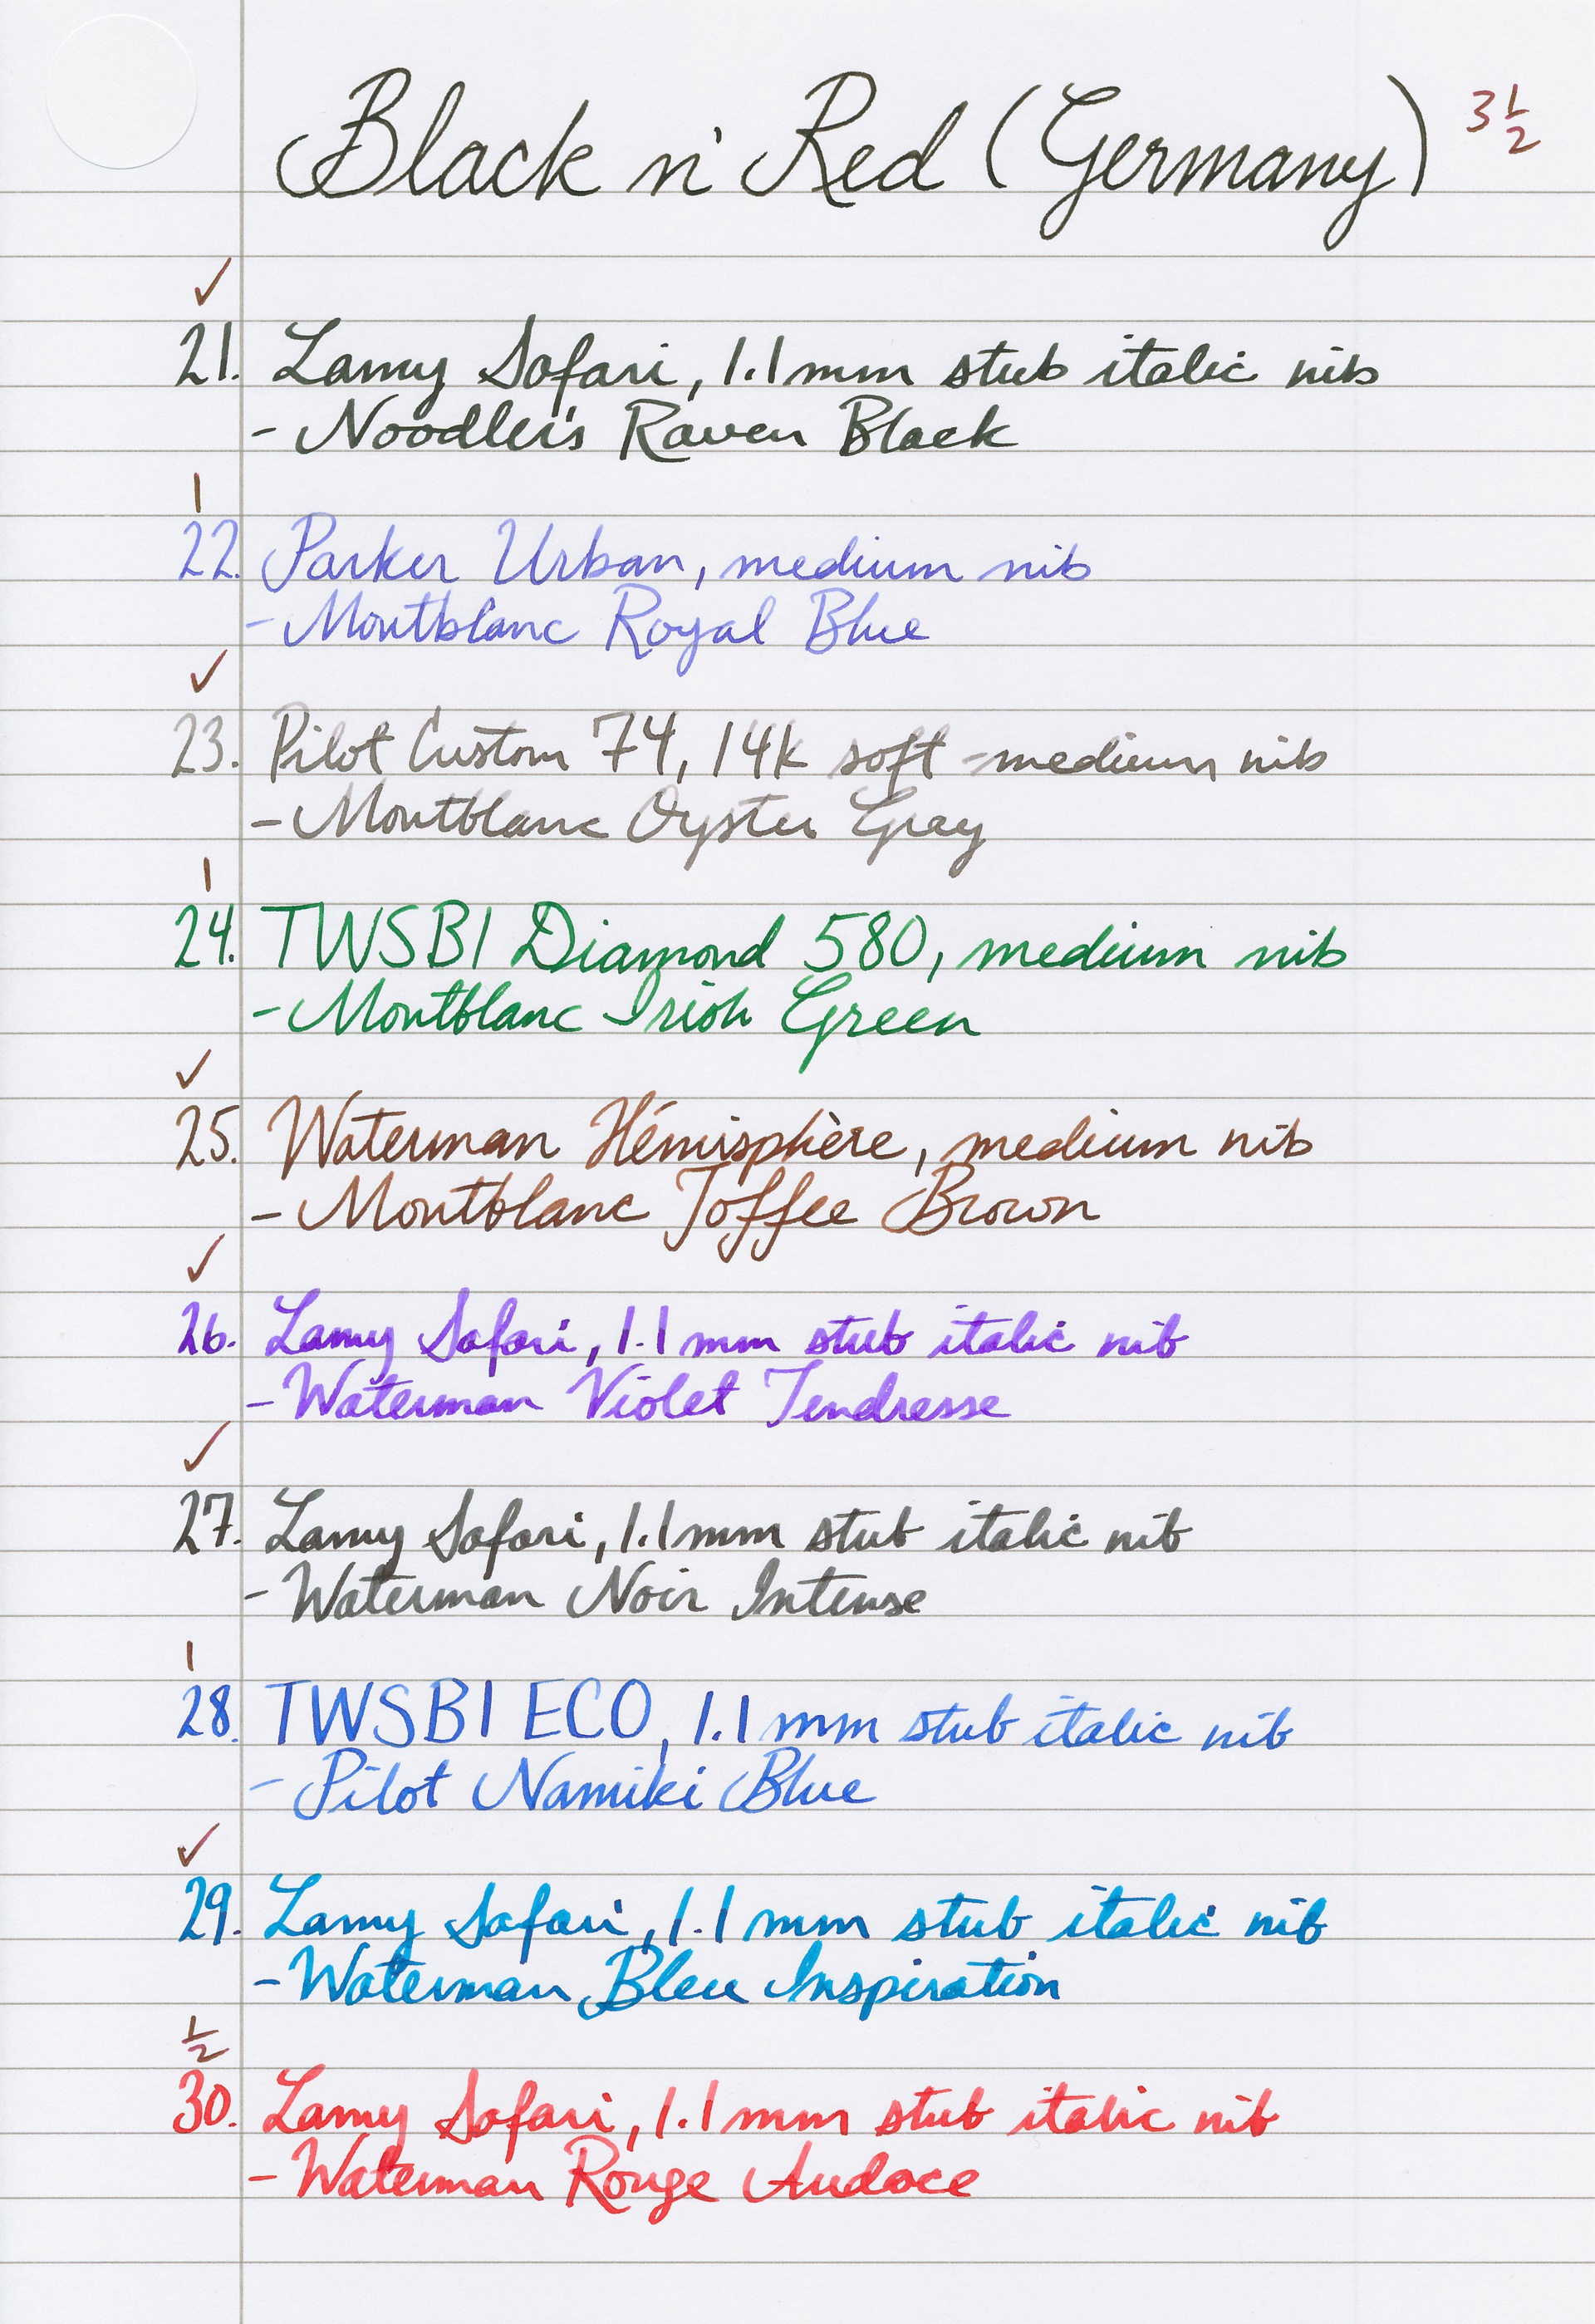 Black n' Red (Germany) 3 1/2
✓
21. Lamy Safari, 1.1mm stub italic nib
- Noodler's Raven Black
1
22. Parker Urban, medium nib
- Montblanc Royal Blue
✓
23. Pilot Custom 74, 14k soft-medium nib
- Montblanc Oyster Gray
1
24. TWSBI Diamond 580, medium nib
- Montblanc Irish Green
✓
25. Waterman Hémisphère, medium nib
- Montblanc Toffee Brown
✓
26. Lamy Safari, 1.1mm stub italic nib
- Waterman Violet Tendresse
✓
27. Lamy Safari, 1.1mm stub italic nib
- Waterman Noir Intense
1
28. TWSBI ECO, 1.1mm stub italic nib
- Pilot Namiki Blue
✓
29. Lamy Safari, 1.1mm stub italic nib
- Waterman Bleu Inspiration
1/2
30. Lamy Safari, 1.1mm stub italic nib
- Waterman Rouge Audace